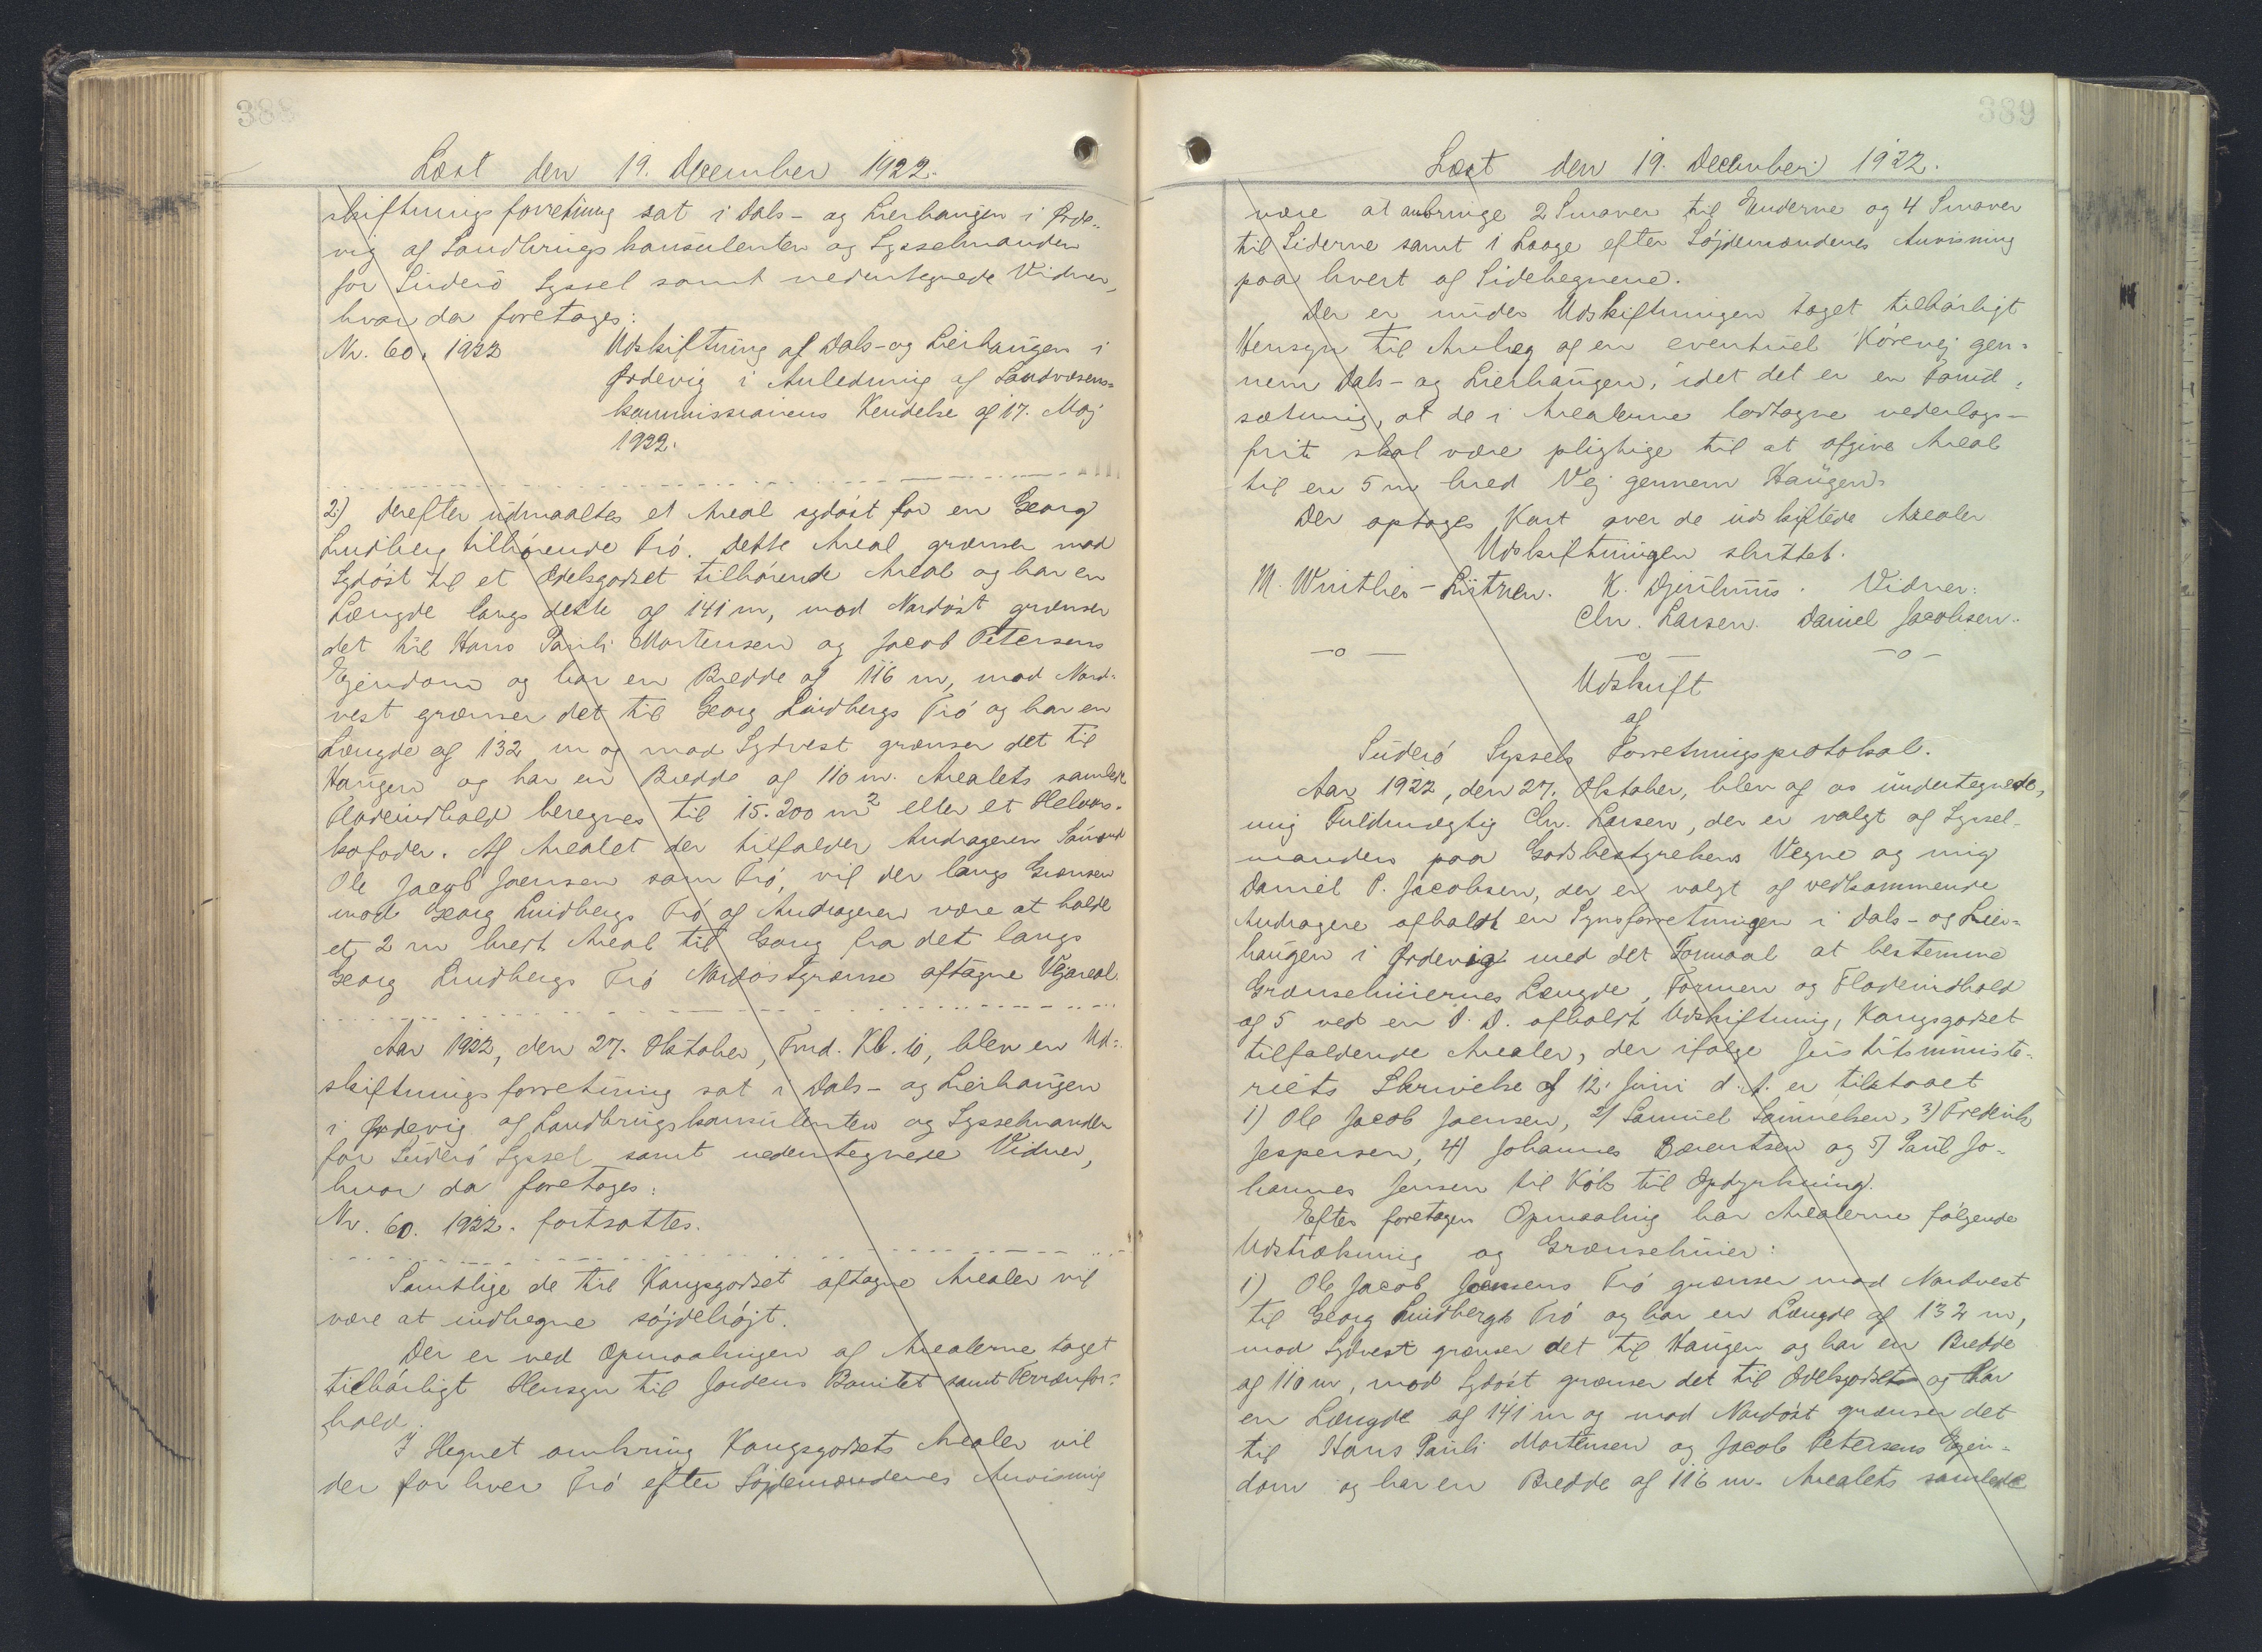 388
Læst den 19. December 1922.
skiftningsforretning sat i Dals- og Lierhaugen i Ørde-
vig af Landbrugskonsulenten og Sysselmanden
for Suderö Syssel samt nedentegnede Vidner,
hvor da foretages:
Nr. 60. 1922 Udskiftning af Dals- og Lierhaugen i
Ørdevig i Anledning af Landvæsens-
kommissionens Kendelse af 17. Maj
1922.
2) Derefter udmaaltes et Areal sydöst for en Georg
Lindberg tilhörende Trö. Dette Areal grænser mod
Sydöst til et Odelsgodset tilhörende Areal og har en
Længde langs dette af 141 m, mod Nordöst grænser
det til Hans Pauli Mortensen og Jacob Petersens
Ejendom og har en Bredde af 116 m, mod Nord-
vest grænser det til Georg Lindbergs Trö og har en
Længde af 132 m og mod Sydvest grænser det til
Haugen og har en Bredde af 110 m. Arealets samlede
Fladeindhold beregnes til 15.200 m² eller et Helaars-
kofoder. Af Arealet der tilfalder Andrageren Sömand
Ole Jacob Joensen som Trö, vil der langs Grænsen
mod Georg Lindbergs Trö af Andrageren være at holde
et 2 m bredt Areal til Gang fra det langs
Georg Lindbergs Trö Nordöstgrænse aftagne Vejareal.
Aar 1922, den 27. Oktober, Fmd. Kl. 10, blev en Ud-
skiftningsforretning sat i Dals- og Lierhaugen
i Ørdevig af Landbrugskonsulenten og Sysselmanden
for Suderö Syssel samt nedentegnede Vidner,
hvor da foretages:
Nr. 60. 1922. fortsattes.
Samtlige de til Kongsgodset aftagne Arealer vil
være at indhegne söjdehöjt.
Der er ved Opmaalingen af Arealerne taget
tilbörligt Hensyn til Jordens Bonitet samt Terrænfor-
hold.
I Hegnet omkring Kongsgodsets Arealer vil
der for hver Trö efter Söjdemændenes Anvisning
389
Læst den 19. December 1922.
være at anbringe 2 Smaver til Enderne og 4 Smaver
til Siderne samt 1 Laage efter Söjdemændenes Anvisning
paa hvert af Sidehegnene.
Der er under Udskiftningen taget tilbörligt
Hensyn til Anlæg af en eventuel Körevej gen-
nem Dals- og Lierhaugen, idet det er en Forud-
sætning, at de i Arealerne lodtagne vederlags-
frit skal være pligtige til at afgive Areal
til en 5 m bred Vej gennem Haugen.
Der optages Kort over de udskiftede Arealer
Udskiftningen sluttet.
M. Winther-Lützen. K. Djurhuus. Vidner:
Chr. Larsen. Daniel Jacobsen.
-o- -o- -o-
Udskrift
af
Suderö Syssels Forretningsprotokol.
Aar 1922, den 27. Oktober, blev af os undertegnede,
mig Fuldmægtig Chr. Larsen, der er valgt af Syssel-
manden paa Godsbestyrelsens Vegne og mig
Daniel P. Jacobsen, der er valgt af vedkommende
Andragere afholdt en Synsforretningen i Dals- og Lier-
haugen i Ørdevig med det Formaal at bestemme
Grænseliniernes Længde, Formen og Fladeindhold
af 5 ved en D. D. afholdt Udskiftning, Kongsgodset
tilfaldende Arealer, der ifölge Justitsministe-
riets Skrivelse af 12. Juni d. A. er tilstaaet
1) Ole Jacob Joensen, 2) Samuel Samuelsen, 3) Frederik
Jespersen, 4) Johannes Bærentsen og 5) Poul Jo-
hannes Jensen til Köb til Opdyrkning.
Efter foretagen Opmaaling har Arealerne fölgende
Udstrækning og Grænselinier:
1) Ole Jacob Joensens Trö grænser mod Nordvest
til Georg Lindbergs Trö og har en Længde af 132 m,
mod Sydvest grænser det til Haugen og har en Bredde
af 110 m, mod Sydöst grænser det til Odelsgodset og har
en Længde af 141 m og mod Nordöst grænser det
til Hans Pauli Mortensen og Jacob Petersens Ejen-
dom og har en Bredde af 116 m. Arealets samlede